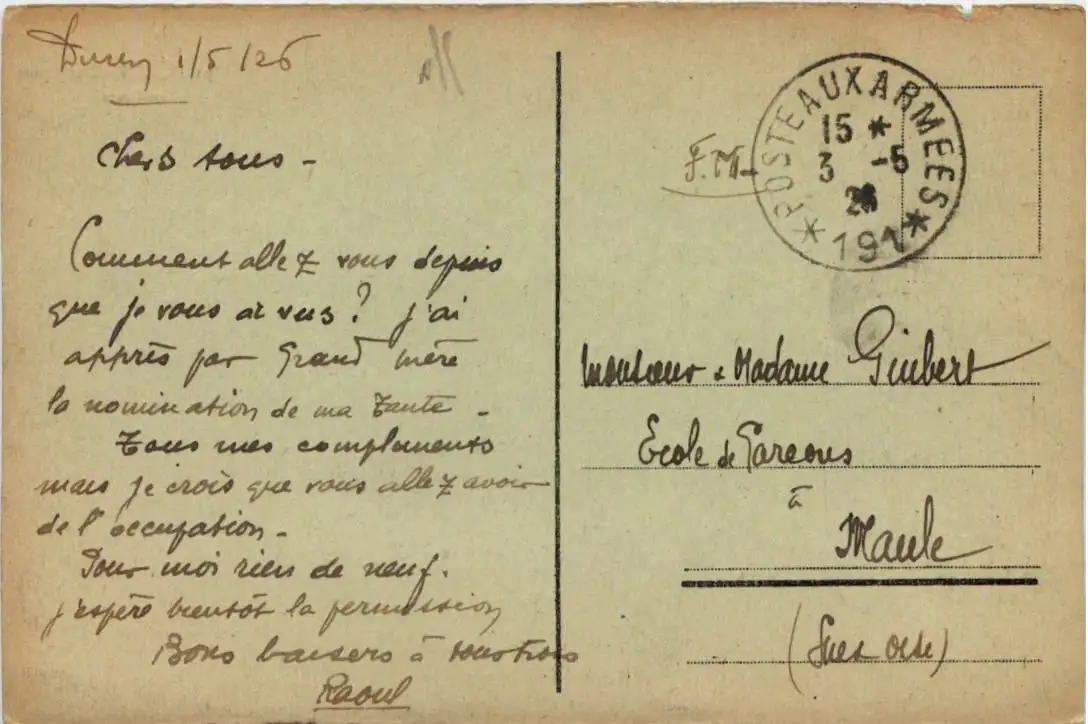 Duren 1/5/26
Chers tous -
Comment allez vous depuis
que je vous ai vus? j'ai
appris par Grand mère
la nomination de ma tante -
Tous mes compliments
mais je crois que vous allez avoir
de l'occupation -
Pour moi rien de neuf.
j'espère bientôt la permission
Bons baisers à tous trois
Raoul
F.M.
* POSTE AUX ARMEES *
15 *
3 -5
26
191
Monsieur & Madame Guibert
Ecole de Garcons
à
Maule
(Seine Oise)